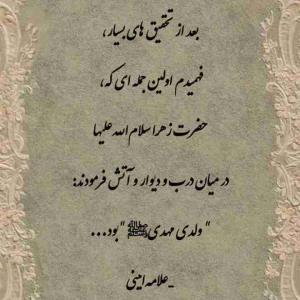 بعد از تحقیق های بسیار،
فهمیدم اولین جمله ای که،
حضرت زهرا سلام الله علیها
در میان درب و دیوار و آتش فرمودند:
"ولدی مهدیﷺ" بود...
_علامه امینی